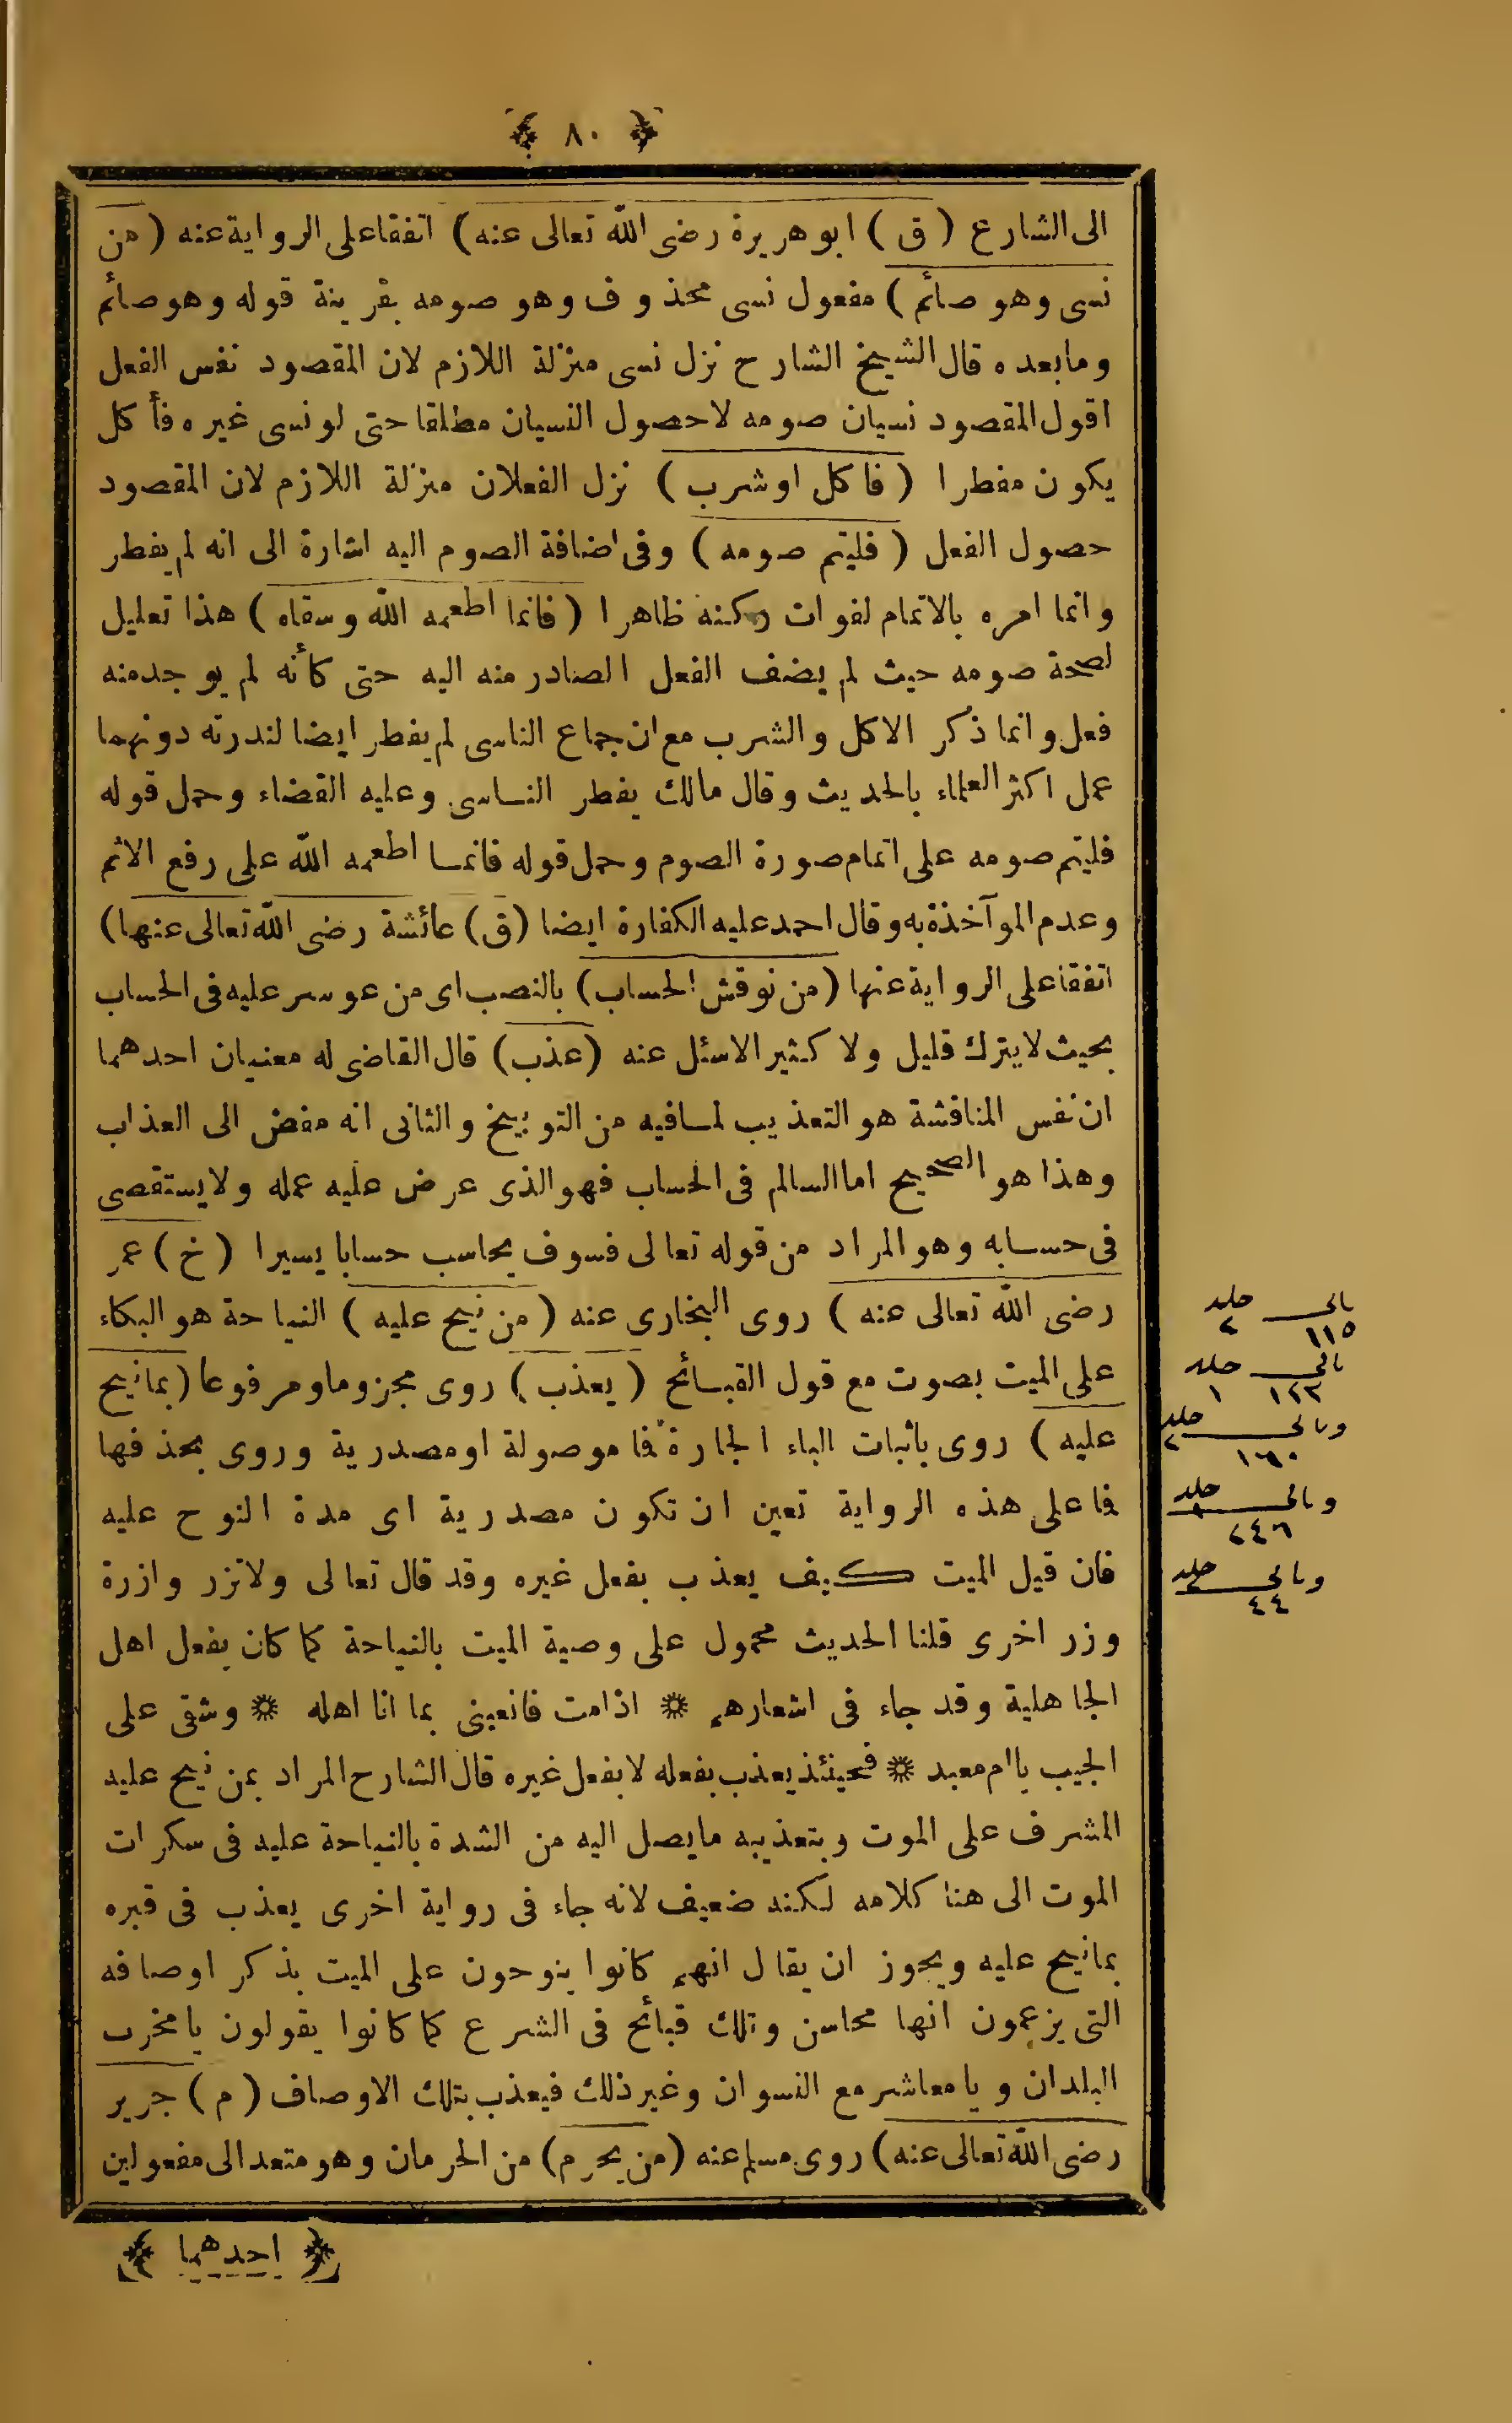 ﴿ ٨٠ ﴾
الى الشارع ( ق ) ابو هريرة رضى الله تعالى عنه ) اتفقا على الرواية عنه ( من
نسى وهو صائم ) مفعول نسى محذوف وهو صومه بقرينة قوله وهو صائم
وما بعده قال الشيخ الشارح نزل نسى منزلة اللازم لان المقصود نفس الفعل
اقول المقصود نسيان صومه لا حصول النسيان مطلقا حتى لو نسى غيره فأكل
يكون مفطرا ( فاكل او شرب ) نزل الفعلان منزلة اللازم لان المقصود
حصول الفعل ( فليتم صومه ) وفى اضافة الصوم اليه اشارة الى انه لم يفطر
وانما امره بالاتمام لفوات ركنه ظاهرا ( فانما اطعمه الله وسقاه ) هذا تعليل
لصحة صومه حيث لم يضف الفعل الصادر منه اليه حتى كأنه لم يوجد منه
فعل وانما ذكر الاكل والشرب مع ان جماع الناسى لم يفطر ايضا لندرته دونهما
عمل اكثر العلماء بالحديث وقال مالك يفطر الناسى وعليه القضاء وحمل قوله
فليتم صومه على اتمام صورة الصوم وحمل قوله فانما اطعمه الله على رفع الاثم
وعدم المو آخذة به وقال احمد عليه الكفارة ايضا (ق) عائشة رضى الله تعالى عنها)
اتفقا على الرواية عنها (من نوقش الحساب) بالنصب اى من عوسر عليه فى الحساب
بحيث لا يترك قليل ولا كثير الا سئل عنه (عذب) قال القاضى له معنيان احدهما
ان نفس المناقشة هو التعذيب لما فيه من التوبيخ والثانى انه مفض الى العذاب
وهذا هو الصحيح اما السالم فى الحساب فهو الذى عرض عليه عمله ولا يستقصى
فى حسابه وهو المراد من قوله تعالى فسوف يحاسب حسابا يسيرا ( خ ) عمر
رضى الله تعالى عنه ) روى البخارى عنه ( من نيح عليه ) النياحة هو البكاء
على الميت بصوت مع قول القبائح ( يعذب ) روى مجزوما ومرفوعا ( بما نيح
عليه ) روى باثبات الباء الجارة فما موصولة او مصدرية وروى بحذفها
فما على هذه الرواية تعين ان تكون مصدرية اى مدة النوح عليه
فان قيل الميت كيف يعذب بفعل غيره وقد قال تعالى ولا تزر وازرة
وزر اخرى قلنا الحديث محمول على وصية الميت بالنياحة كما كان يفعل اهل
الجاهلية وقد جاء فى اشعارهم ۞ اذا مت فانعينى بما انا اهله ۞ وشقى على
الجيب يا ام معبد ۞ فحينئذ يعذب بفعله لا بفعل غيره قال الشارح المراد بمن نيح عليه
المشرف على الموت وبتعذيبه ما يصل اليه من الشدة بالنياحة عليه فى سكرات
الموت الى هنا كلامه لكنه ضعيف لانه جاء فى رواية اخرى يعذب فى قبره
بما نيح عليه ويجوز ان يقال انهم كانوا ينوحون على الميت بذكر اوصافه
التى يزعمون انها محاسن وتلك قبائح فى الشرع كما كانوا يقولون يا مخرب
البلدان ويا معاشر مع النسوان وغير ذلك فيعذب بتلك الاوصاف ( م ) جرير
رضى الله تعالى عنه ) روى مسلم عنه ( من يحرم ) من الحرمان وهو متعد الى مفعولين
﴿ احدهما ﴾
جلد
١١٥ ٢
جلد
١٢٣ ١
جلد
١٦٠ ٢
جلد
٢٤٦
جلد
٤٤